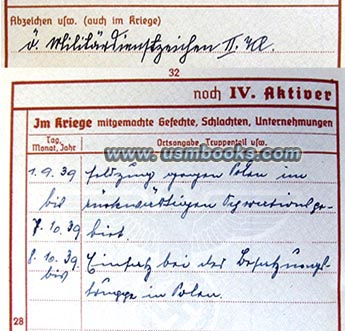 Abzeichen usw. (auch im Kriege)
ö. Militärdienstzeichen II. Kl.
32
noch IV. Aktiver
Im Kriege mitgemachte Gefechte, Schlachten, Unternehmungen
Tag, Monat, Jahr
Ortsangabe, Truppenteil usw.
www.usmbooks.com
1.9.39 Feldzug gegen Polen im
bis rückwärtigen Operationsge-
7.10.39. biet.
8.10.39. Einsatz bei der Besatzungs-
bis truppe in Polen.
28